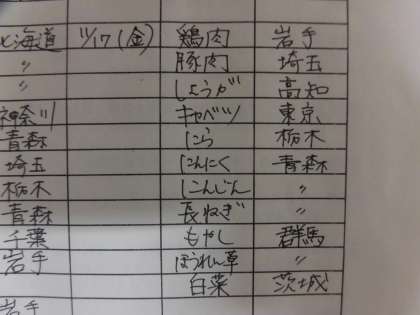 北海道 11/17(金) 鶏肉 岩手
〃 豚肉 埼玉
〃 しょうが 高知
神奈川 キャベツ 東京
青森 にら 栃木
埼玉 にんにく 青森
栃木 にんじん 〃
青森 長ねぎ 〃
千葉 もやし 群馬
岩手 ほうれん草 〃
白菜 茨城
岩手